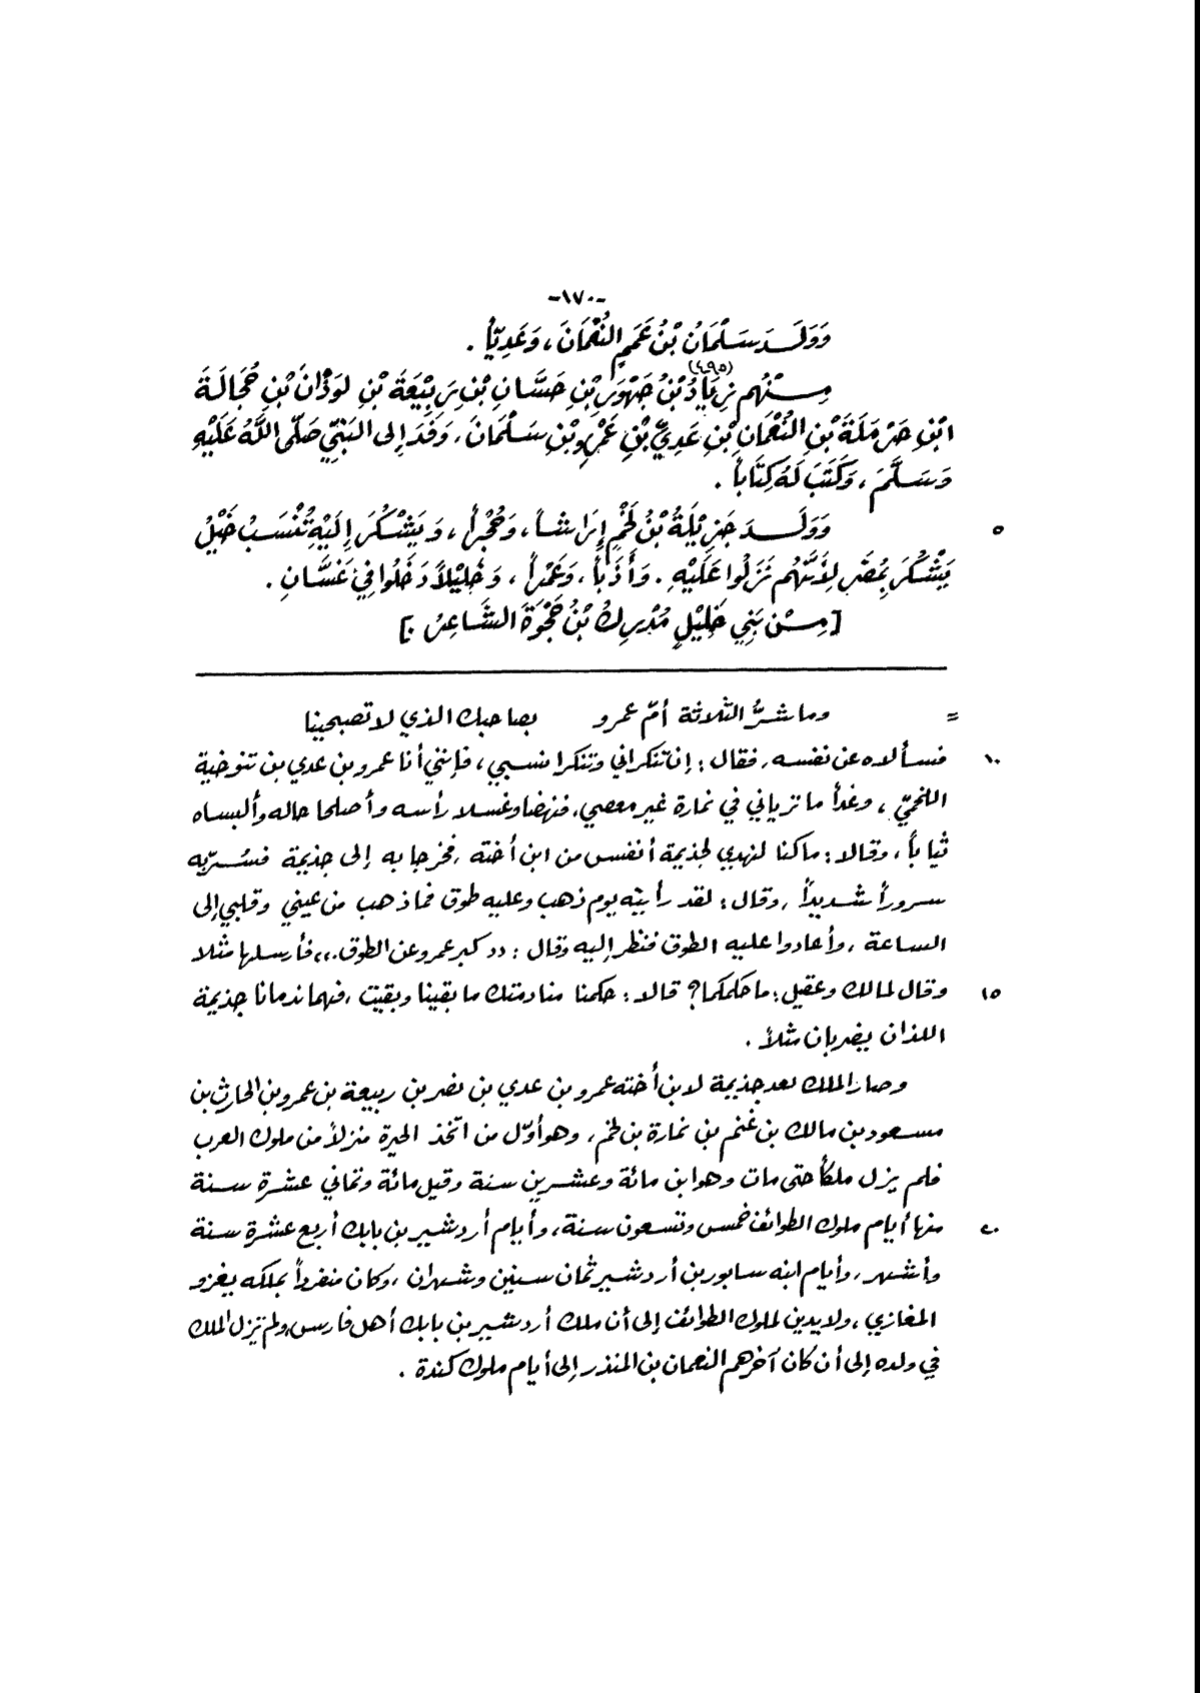 -١٧٠-
وَوَلَدَ سَلْمَانُ بْنُ عَمَمٍ النُّعْمَانَ، وَعَدِيّاً .
مِنْهُم زِيَادُ (٤٩٥) بْنُ جَهْوَرِ بْنِ حَسَّانِ بْنِ رَبِيْعَةَ بْنِ لَوْذَانَ بْنِ حُجَالَةَ
ابْنِ حَرْمَلَةَ بْنِ النُّعْمَانِ بْنِ عَدِيِّ بْنِ عَمْرِو بْنِ سَلْمَانَ، وَفَدَ إلى النَبْيِّ صَلَّى اللَّهُ عَلَيْهِ
وَسَلَّمَ، وَكَتَبَ لَهُ كِتَاباً .
٥ وَوَلَدَ جَزِيْلَةُ بْنُ لَخْمٍ إرَاشاً، وَحُجْراً، وَيَشْكُرَ إِلَيْهِ تُنْسَبُ خَيْلُ
يَشْكُرَ بِمُصْرَ لِأَنَّهُم نَزَلُوا عَلَيْهِ . وَأَذَبَاً، وَعَمْراً، وَخَلِيْلاً دَخَلُوا فِيْ غَسَّانِ .
[مِنْ بَنِي خَلِيْلٍ مُدْرِكُ بْنُ حَجْوَةَ الشَّاعِرُ .]
= وما شرُّ الثلاثة أمّ عمرو بصاحبك الذي لا تصبحينا
١٠ فسألاه عن نفسه، فقال : إن تنكراني وتنكرا نسبي، فإنني أنا عمرو بن عدي بن تنوخية
اللخميّ، وغداً ما ترياني في نمارة غير معصي، فنهضا وغسلا رأسه وأصلحا حاله وألبساه
ثياباً، وقالا : ما كنا لنهدي لجذيمة أنفس من ابن أخته، فخرجا به إلى جذيمة فسُرّبه
سروراً شديداً، وقال : لقد رأيته يوم ذهب وعليه طوق فما ذهب من عيني وقلبي إلى
الساعة، وأعادوا عليه الطوق فنظر إليه وقال : ,, كبر عمرو عن الطوق .،، فأرسلها مثلا
١٥ وقال لمالك وعقيل : ما حكمكما؟ قالا : حكمنا منادمتك ما بقينا وبقيت، فهما ندمانا جذيمة
اللذان يضربان مثلاً .
وصار الملك بعد جذيمة لابن أخته عمرو بن عدي بن نصر بن ربيعة بن عمرو بن الحارث بن
مسعود بن مالك بن غنم بن نمارة بن لخم، وهو أوّل من اتّخذ الحيرة منزلاً من ملوك العرب
فلم يزل ملكاً حتى مات وهو ابن مائة وعشرين سنة وقيل مائة وثماني عشرة سنة
٢٠ منها أيام ملوك الطوائف خمس وتسعون سنة، وأيام أردشير بن بابك أربع عشرة سنة
وأشهر، وأيام ابنه سابور بن أردشير ثمان سنين وشهران، وكان منفرداً بملكه يغزو
المغازي، ولا يدين لملوك الطوائف إلى أن ملك أردشير بن بابك أهل فارس، ولم يزل الملك
في ولده إلى أن كان آخرهم النعمان بن المنذر إلى أيام ملوك كندة .